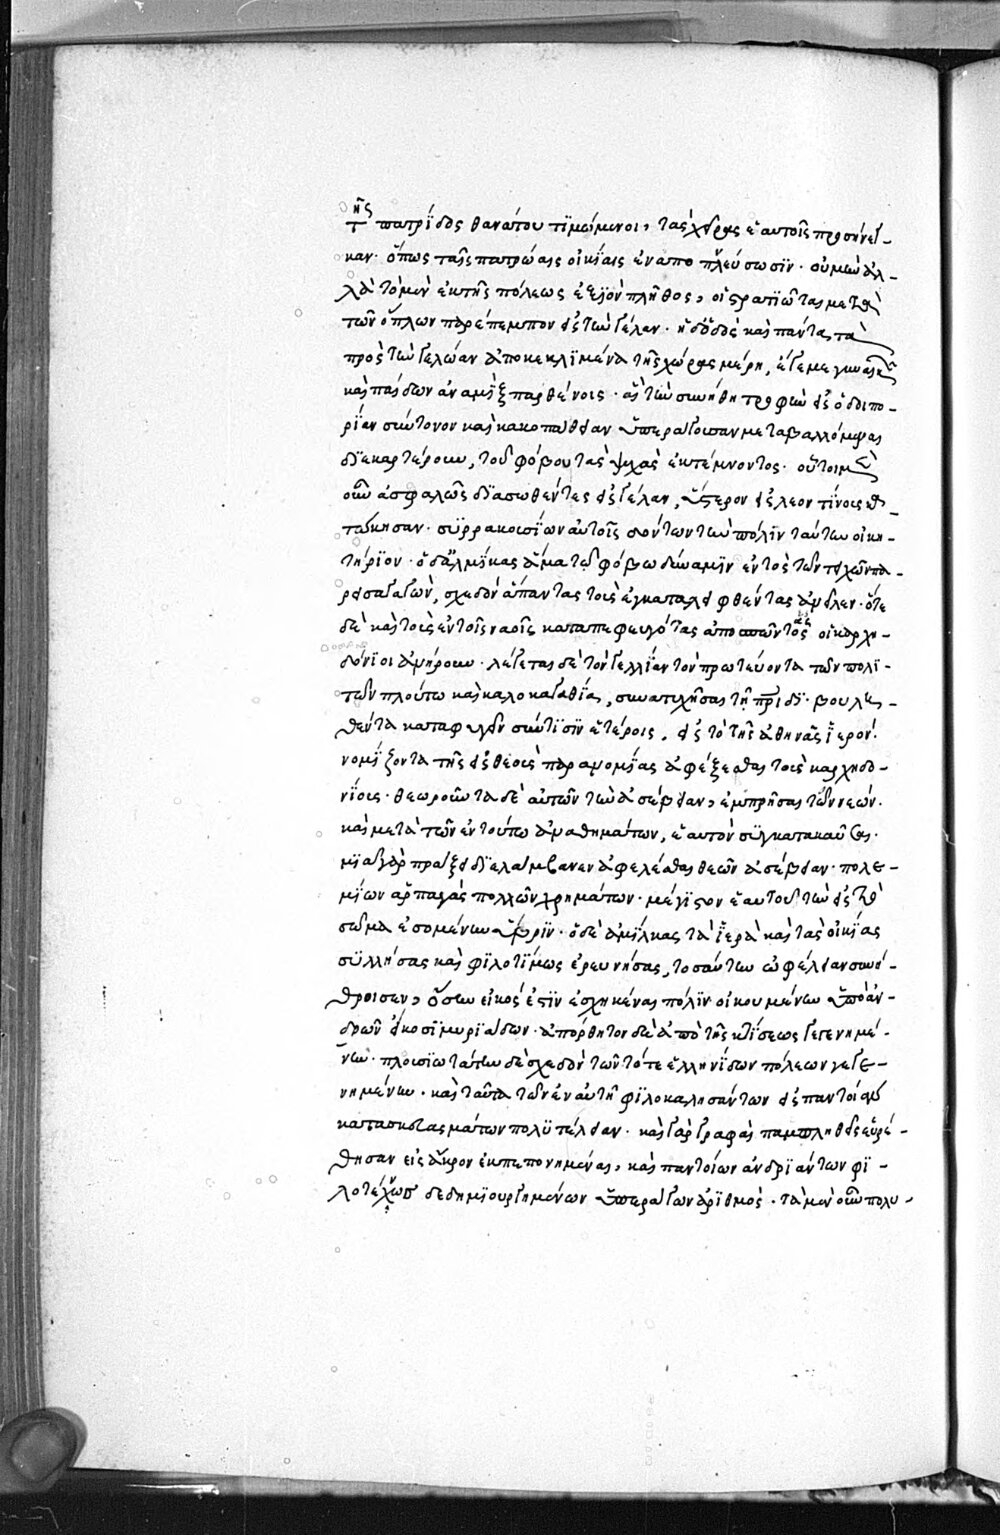 τῆς πατρίδος θανάτου τιμώμενοι, τὰς χεῖρας ἑαυτοῖς προσήνεγ-
καν· ὅπως ταῖς πατρώαις οἰκίαις ἐναποπνεύσωσϊν· οὐ μὴν ἀλ-
λὰ τὸ μὲν ἐκ τῆς πόλεως ἐξϊὸν πλῆθος, οἱ στρατιῶται μετὰ
τῶν ὅπλων παρέπεμπον εἰς τὴν γέλαν· ἡ δ' ὁδὸς καὶ πάντα τὰ
πρὸς τὴν γελώαν ἀποκεκλϊμένα τῆς χώρας μέρη, ἔγεμε γυναικῶν
καὶ παίδων ἀναμὶξ παρθένοις· αἳ τὴν συνήθη τρυφὴν εἰς ὁδοιπο-
ρίαν σύντονον καὶ κακοπάθειαν ὑπεράγουσαν μεταβαλλόμεναι
διεκαρτέρουν, τοῦ φόβου τὰς ψυχὰς ἐκτέμνοντος· οὗτοι μὲν
οὖν ἀσφαλῶς διασωθέντες εἰς γέλαν, ὕστερον εἰς λεοντίνους κα-
τώκησαν· συρρακουσίων αὐτοῖς δόντων τὴν πόλϊν ταύτην οἰκη-
τήριον· ὁ δ' ἀμίλκας ἅμα τῷ φόβω δύναμϊν ἐντὸς τῶν τειχῶν πα-
ρεισαγαγὼν, σχεδὸν ἅπαντας τοὺς ἐγκαταλειφθέντας ἀνεῖλεν· ὅτε
δὲ καὶ τοὺς ἐν τοῖς ναοῖς καταπεφευγότας ἀποσπῶντες οἱ καρχη-
δόνϊοι ἀνήρουν· λέγεται δὲ τὸν γελλίαν τὸν πρωτεύοντα τῶν πολϊ-
τῶν πλούτω καὶ καλοκαγαθία, συνατυχῆσαι τῇ πρίδι· βουλη-
θέντα καταφυγεῖν σύν τισϊν ἑτέροις, εἰς τὸ τῆς ἀθηνᾶς ἱερὸν·
νομίζοντα τῆς εἰς θεοὺς παρανομίας ἀφέξεσθαι τοὺς καρχηδο-
νίους· θεωροῦντα δὲ αὐτῶν τὴν ἀσέβειαν, ἐμπρῆσαι τὸν νεών·
καὶ μετὰ τῶν ἐν τούτω ἀναθημάτων, ἑαυτὸν συγκατακαῦσαι·
μιᾷ γὰρ πράξει διελάμβανεν ἀφελέσθαι θεῶν ἀσέβειαν· πολε-
μίων ἁρπαγὰς πολλῶν χρημάτων· μέγιστον ἑαυτοῦ τὴν εἰς τὸ
σῶμα ἐσομένην ὕβρϊν· ὁ δὲ ἀμίλκας τὰ ἱερὰ καὶ τὰς οἰκίας
συλλήσας καὶ φιλοτίμως ἐρευνήσας, τοσαύτην ὠφέλειαν συνή-
θροισεν, ὅσην εἰκός ἐστϊν ἐσχηκέναι πόλϊν οἰκουμένην ὑπὸ ἀν-
δρῶν εἴκοσϊ μυριάδων· ἀπόρθητον δὲ ἀπὸ τῆς κτίσεως γεγενημέ-
νην· πλουσιωτάτην δὲ σχεδὸν τῶν τότε ἑλληνίδων πόλεων γεγε-
νημένην· καὶ ταῦτα τῶν ἐν αὐτῇ φιλοκαλησάντων εἰς παντοίων
κατασκευασμάτων πολυτέλειαν· καὶ γὰρ γραφαὶ παμπληθεῖς εὑρέ-
θησαν εἰς ἄκρον ἐκπεπονημέναι, καὶ παντοίων ἀνδριάντων φϊ-
λοτέχνως δεδημϊουργημένων ὑπεράγων ἀριθμὸς· τὰ μὲν οὖν πολυ-